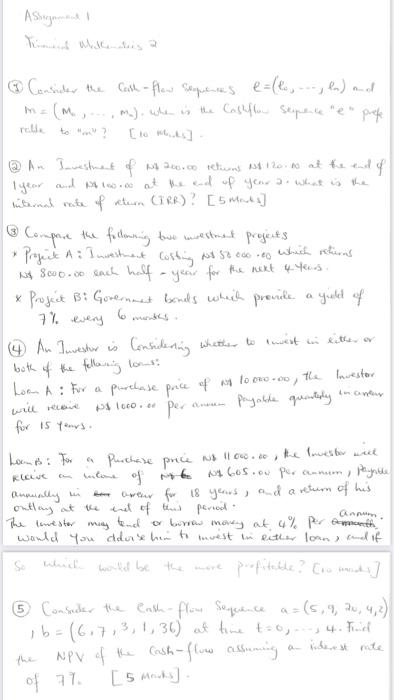 Assignment 1
Financial Mathematics 2
① Consider the Cash-flow Sequences e=(e₀, ..., eₙ) and
m = (m₀, ..., mₙ). when is the Cashflow Sequence "e" prefe
rable to "m"? [10 Marks].
② An Investment of N$ 200.00 returns N$ 120.00 at the end of
1 year and N$ 100.00 at the end of year 2. what is the
internal rate of return (IRR)? [5 Marks]
③ Compare the following two investment projects
* Project A: Investment Costing N$ 50 000.00 which returns
N$ 8000.00 each half-year for the next 4 years.
* Project B: Government bonds which provide a yield of
7% every 6 months.
④ An Investor is Considering whether to invest in either or
both of the following loans:
Loan A: For a purchase price of N$ 10 000.00, the Investor
will receive N$ 1000.00 per annum payable quarterly in arrear
for 15 years.
Loan B: For a Purchase price N$ 11 000.00, the Investor will
Receive an income of N$ 605.00 per annum, payable
annually in arrear for 18 years, and a return of his
outlay at the end of this period.
The investor may lend or borrow money at 4% Per annum.
would you advise him to invest in either loan, and if
So which would be the more profitable? [10 marks]
⑤ Consider the Cash-flow Sequence a = (5, 9, 20, 4, 2)
, b = (6, 7, 3, 1, 36) at time t=0, ..., 4. Find
the NPV of the Cash-flow assuming an interest rate
of 7%. [5 Marks].